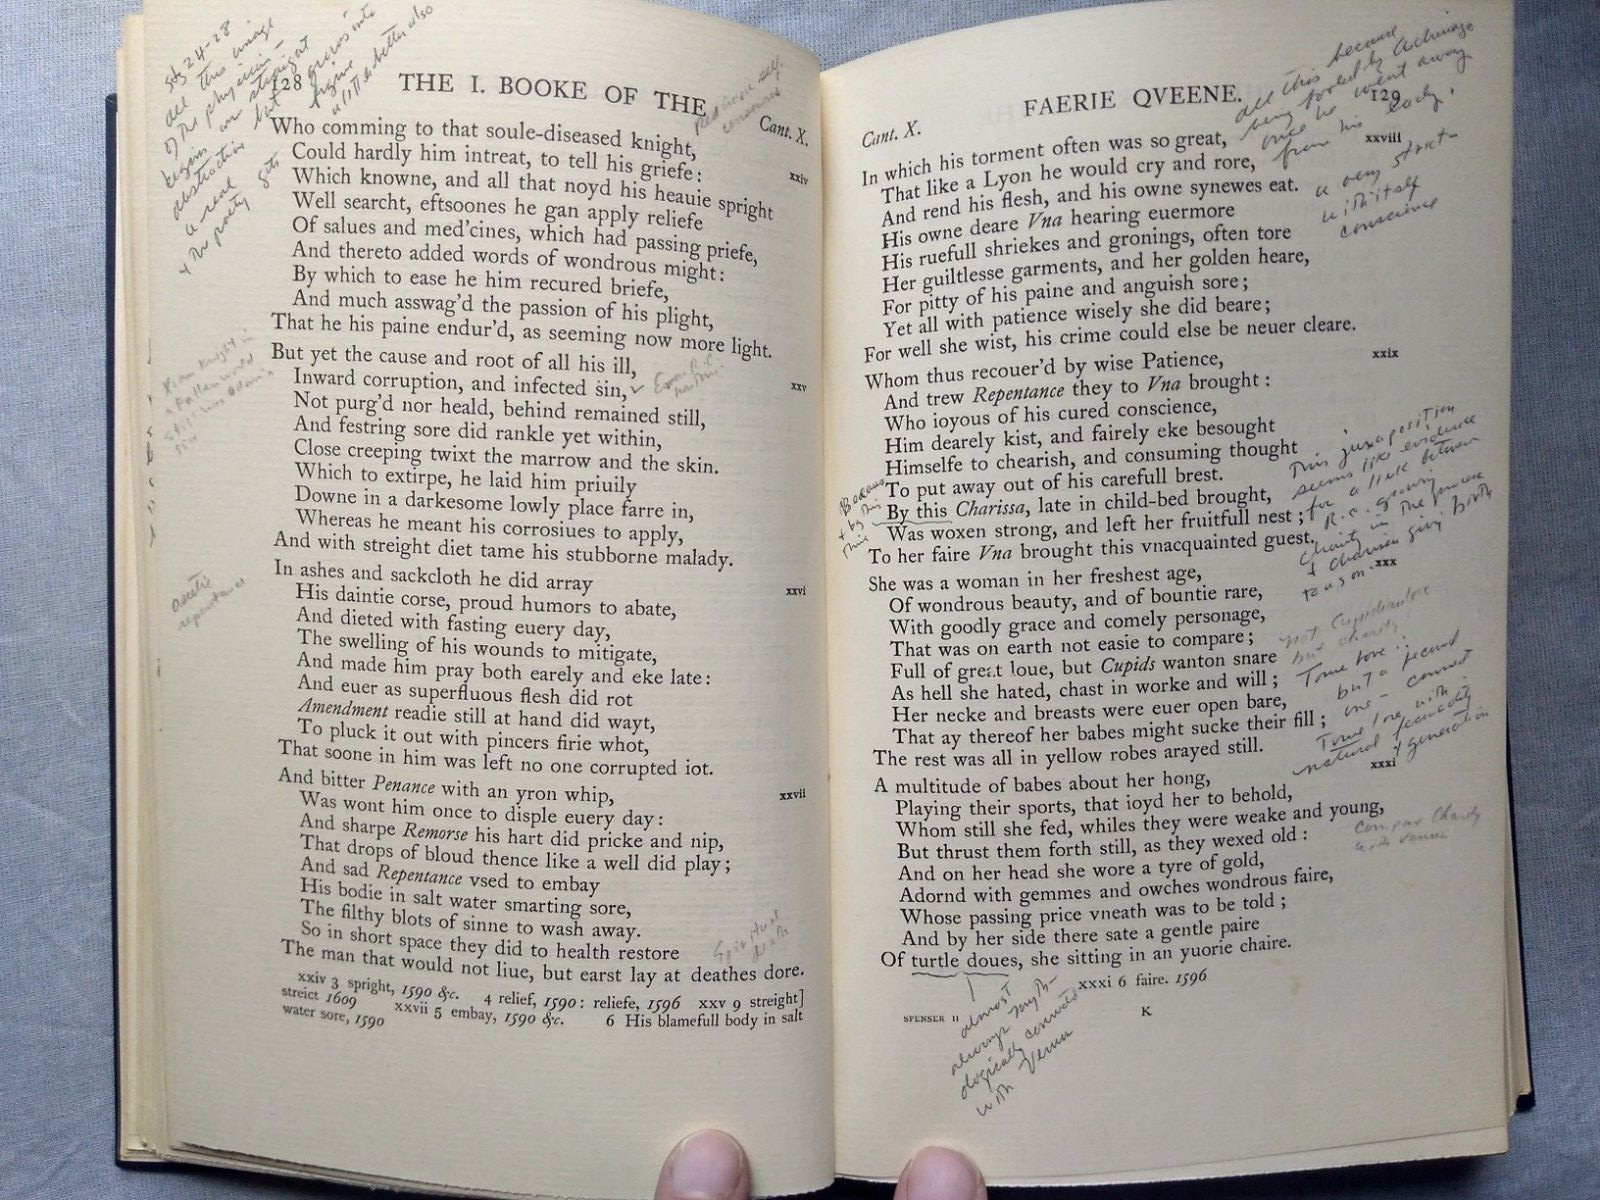 stz 24-28
all this image
of the physician
begins as straight
abstraction but
a real
& the poetry gets
across into
figure
a little better also
128 THE I. BOOKE OF THE
Cant. X.
Who comming to that soule-diseased knight,
Could hardly him intreat, to tell his griefe: xxiv
Which knowne, and all that noyd his heauie spright
Well searcht, eftsoones he gan apply reliefe
Of salues and med'cines, which had passing priefe,
And thereto added words of wondrous might:
By which to ease he him recured briefe,
And much asswag'd the passion of his plight,
That he his paine endur'd, as seeming now more light.
But yet the cause and root of all his ill,
Inward corruption, and infected sin, xxv
Not purg'd nor heald, behind remained still,
And festring sore did rankle yet within,
Close creeping twixt the marrow and the skin.
Which to extirpe, he laid him priuily
Downe in a darkesome lowly place farre in,
Whereas he meant his corrosiues to apply,
And with streight diet tame his stubborne malady.
In ashes and sackcloth he did array xxvi
His daintie corse, proud humors to abate,
And dieted with fasting euery day,
The swelling of his wounds to mitigate,
And made him pray both earely and eke late:
And euer as superfluous flesh did rot
Amendment readie still at hand did wayt,
To pluck it out with pincers firie whot,
That soone in him was left no one corrupted iot.
ascetic
repentance
And bitter Penance with an yron whip, xxvii
Was wont him once to disple euery day:
And sharpe Remorse his hart did pricke and nip,
That drops of bloud thence like a well did play;
And sad Repentance vsed to embay
His bodie in salt water smarting sore,
The filthy blots of sinne to wash away.
So in short space they did to health restore
The man that would not liue, but earst lay at deathes dore.
Spiritual
death
xxiv 3 spright, 1590 &c. 4 relief, 1590: reliefe, 1596 xxv 9 streight]
streict 1609 xxvii 5 embay, 1590 &c. 6 His blamefull body in salt
water sore, 1590
FAERIE QVEENE. 129
Cant. X.
all this because
being fooled by Archimago
once he went away
from his lady.
a very strict
with itself
conscience
In which his torment often was so great, xxviii
That like a Lyon he would cry and rore,
And rend his flesh, and his owne synewes eat.
His owne deare Vna hearing euermore
His ruefull shriekes and gronings, often tore
Her guiltlesse garments, and her golden heare,
For pitty of his paine and anguish sore;
Yet all with patience wisely she did beare;
For well she wist, his crime could else be neuer cleare.
Whom thus recouer'd by wise Patience, xxix
And trew Repentance they to Vna brought:
Who ioyous of his cured conscience,
Him dearely kist, and fairely eke besought
Himselfe to chearish, and consuming thought
To put away out of his carefull brest.
By this Charissa, late in child-bed brought,
Was woxen strong, and left her fruitfull nest;
To her faire Vna brought this vnacquainted guest.
This juxaposition
seems like evidence
for a link between
R.C. growing
charity in the process
& charissa giving birth
to a son.
She was a woman in her freshest age, xxx
Of wondrous beauty, and of bountie rare,
With goodly grace and comely personage,
That was on earth not easie to compare;
Full of great loue, but Cupids wanton snare
As hell she hated, chast in worke and will;
Her necke and breasts were euer open bare,
That ay thereof her babes might sucke their fill;
The rest was all in yellow robes arayed still.
True love with
natural fecundity
& generation
A multitude of babes about her hong, xxxi
Playing their sports, that ioyd her to behold,
Whom still she fed, whiles they were weake and young,
But thrust them forth still, as they wexed old:
And on her head she wore a tyre of gold,
Adornd with gemmes and owches wondrous faire,
Whose passing price vneath was to be told;
And by her side there sate a gentle paire
Of turtle doues, she sitting in an yuorie chaire.
compare Charity
venus
almost
always myth-
ologically connected
with Venus
xxxi 6 faire. 1596
SPENSER II K